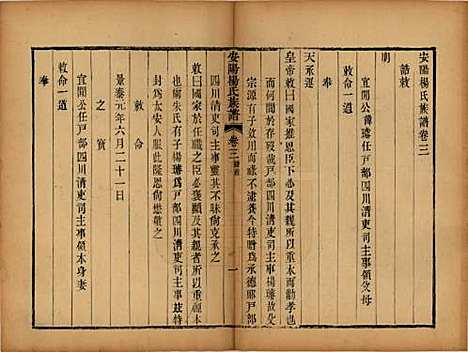 安陽楊氏族譜卷三
誥敕
明
宜閒公諱璿任戶部四川清吏司主事領父母
敕命一道
奉
天承運
皇帝敕曰國家推恩臣下必及其親所以重本而勸孝也
而何間於存歿哉戶部四川清吏司主事楊璿故父
宗源有子效用而祿不逮養今特贈爲承德郎戶部
四川清吏司主事靈其不昧尙克承之
敕曰國家於任職之臣必褒顯及其親者所以重福本
也爾朱氏有子楊璿爲戶部四川清吏司主事茲特
封爲太安人服此隆恩尙懋敬之
敕命
景泰元年六月二十一日
之寶
宜閒公任戶部四川清吏司主事領本身妻
敕命一道
奉
安陽楊氏族譜
卷三
一